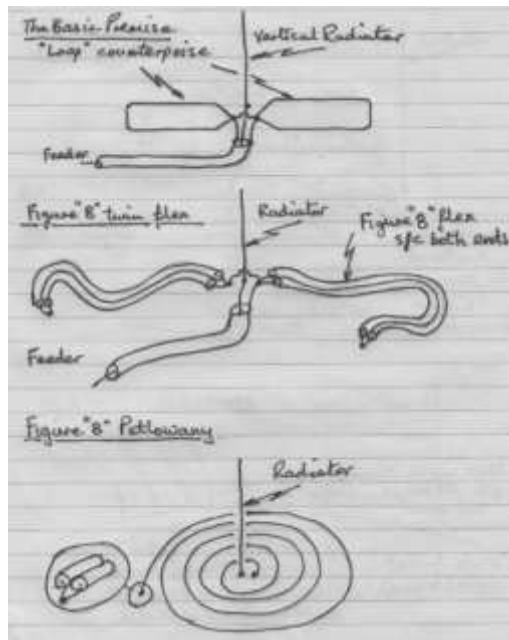 The Basic Premise
"Loop" counterpoise
Vertical Radiator
Feeder
Figure "8" twin flex
Radiator
Figure "8" flex
s/c both ends
Feeder
Figure "8" Petlowany
Radiator